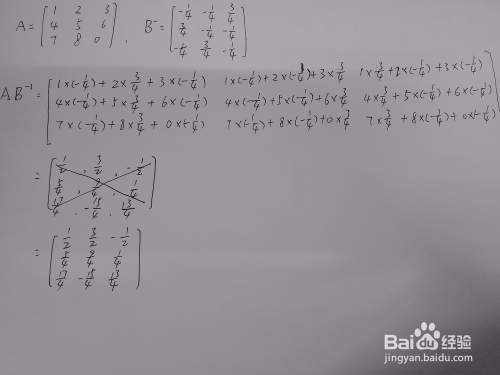 A = [1 2 3; 4 5 6; 7 8 0] . B⁻ = [-1/4 -1/4 3/4; 3/4 -1/4 -1/4; -1/4 3/4 -1/4]
AB⁻¹ = [1×(-1/4)+2×3/4+3×(-1/4) 1×(-1/4)+2×(-1/4)+3×3/4 1×3/4+2×(-1/4)+3×(-1/4)
4×(-1/4)+5×3/4+6×(-1/4) 4×(-1/4)+5×(-1/4)+6×3/4 4×3/4+5×(-1/4)+6×(-1/4)
7×(-1/4)+8×3/4+0×(-1/4) 7×(-1/4)+8×(-1/4)+0×3/4 7×3/4+8×(-1/4)+0×(-1/4)]
= [1/2 , 3/2 , -1/2
5/4 , 9/4 , 1/4
17/4 . -15/4 . 13/4]
= [1/2 3/2 -1/2
5/4 9/4 1/4
17/4 -15/4 13/4]
Baidu经验
jingyan.baidu.com